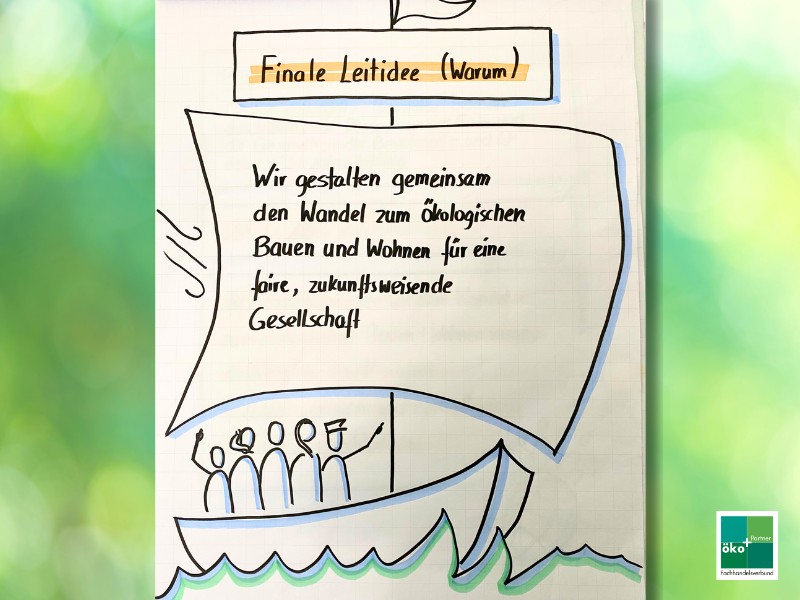 Finale Leitidee (Warum)
Wir gestalten gemeinsam
den Wandel zum Ökologischen
Bauen und Wohnen für eine
faire, zukunftsweisende
Gesellschaft
Partner
öko+
Fachhandelsverbund